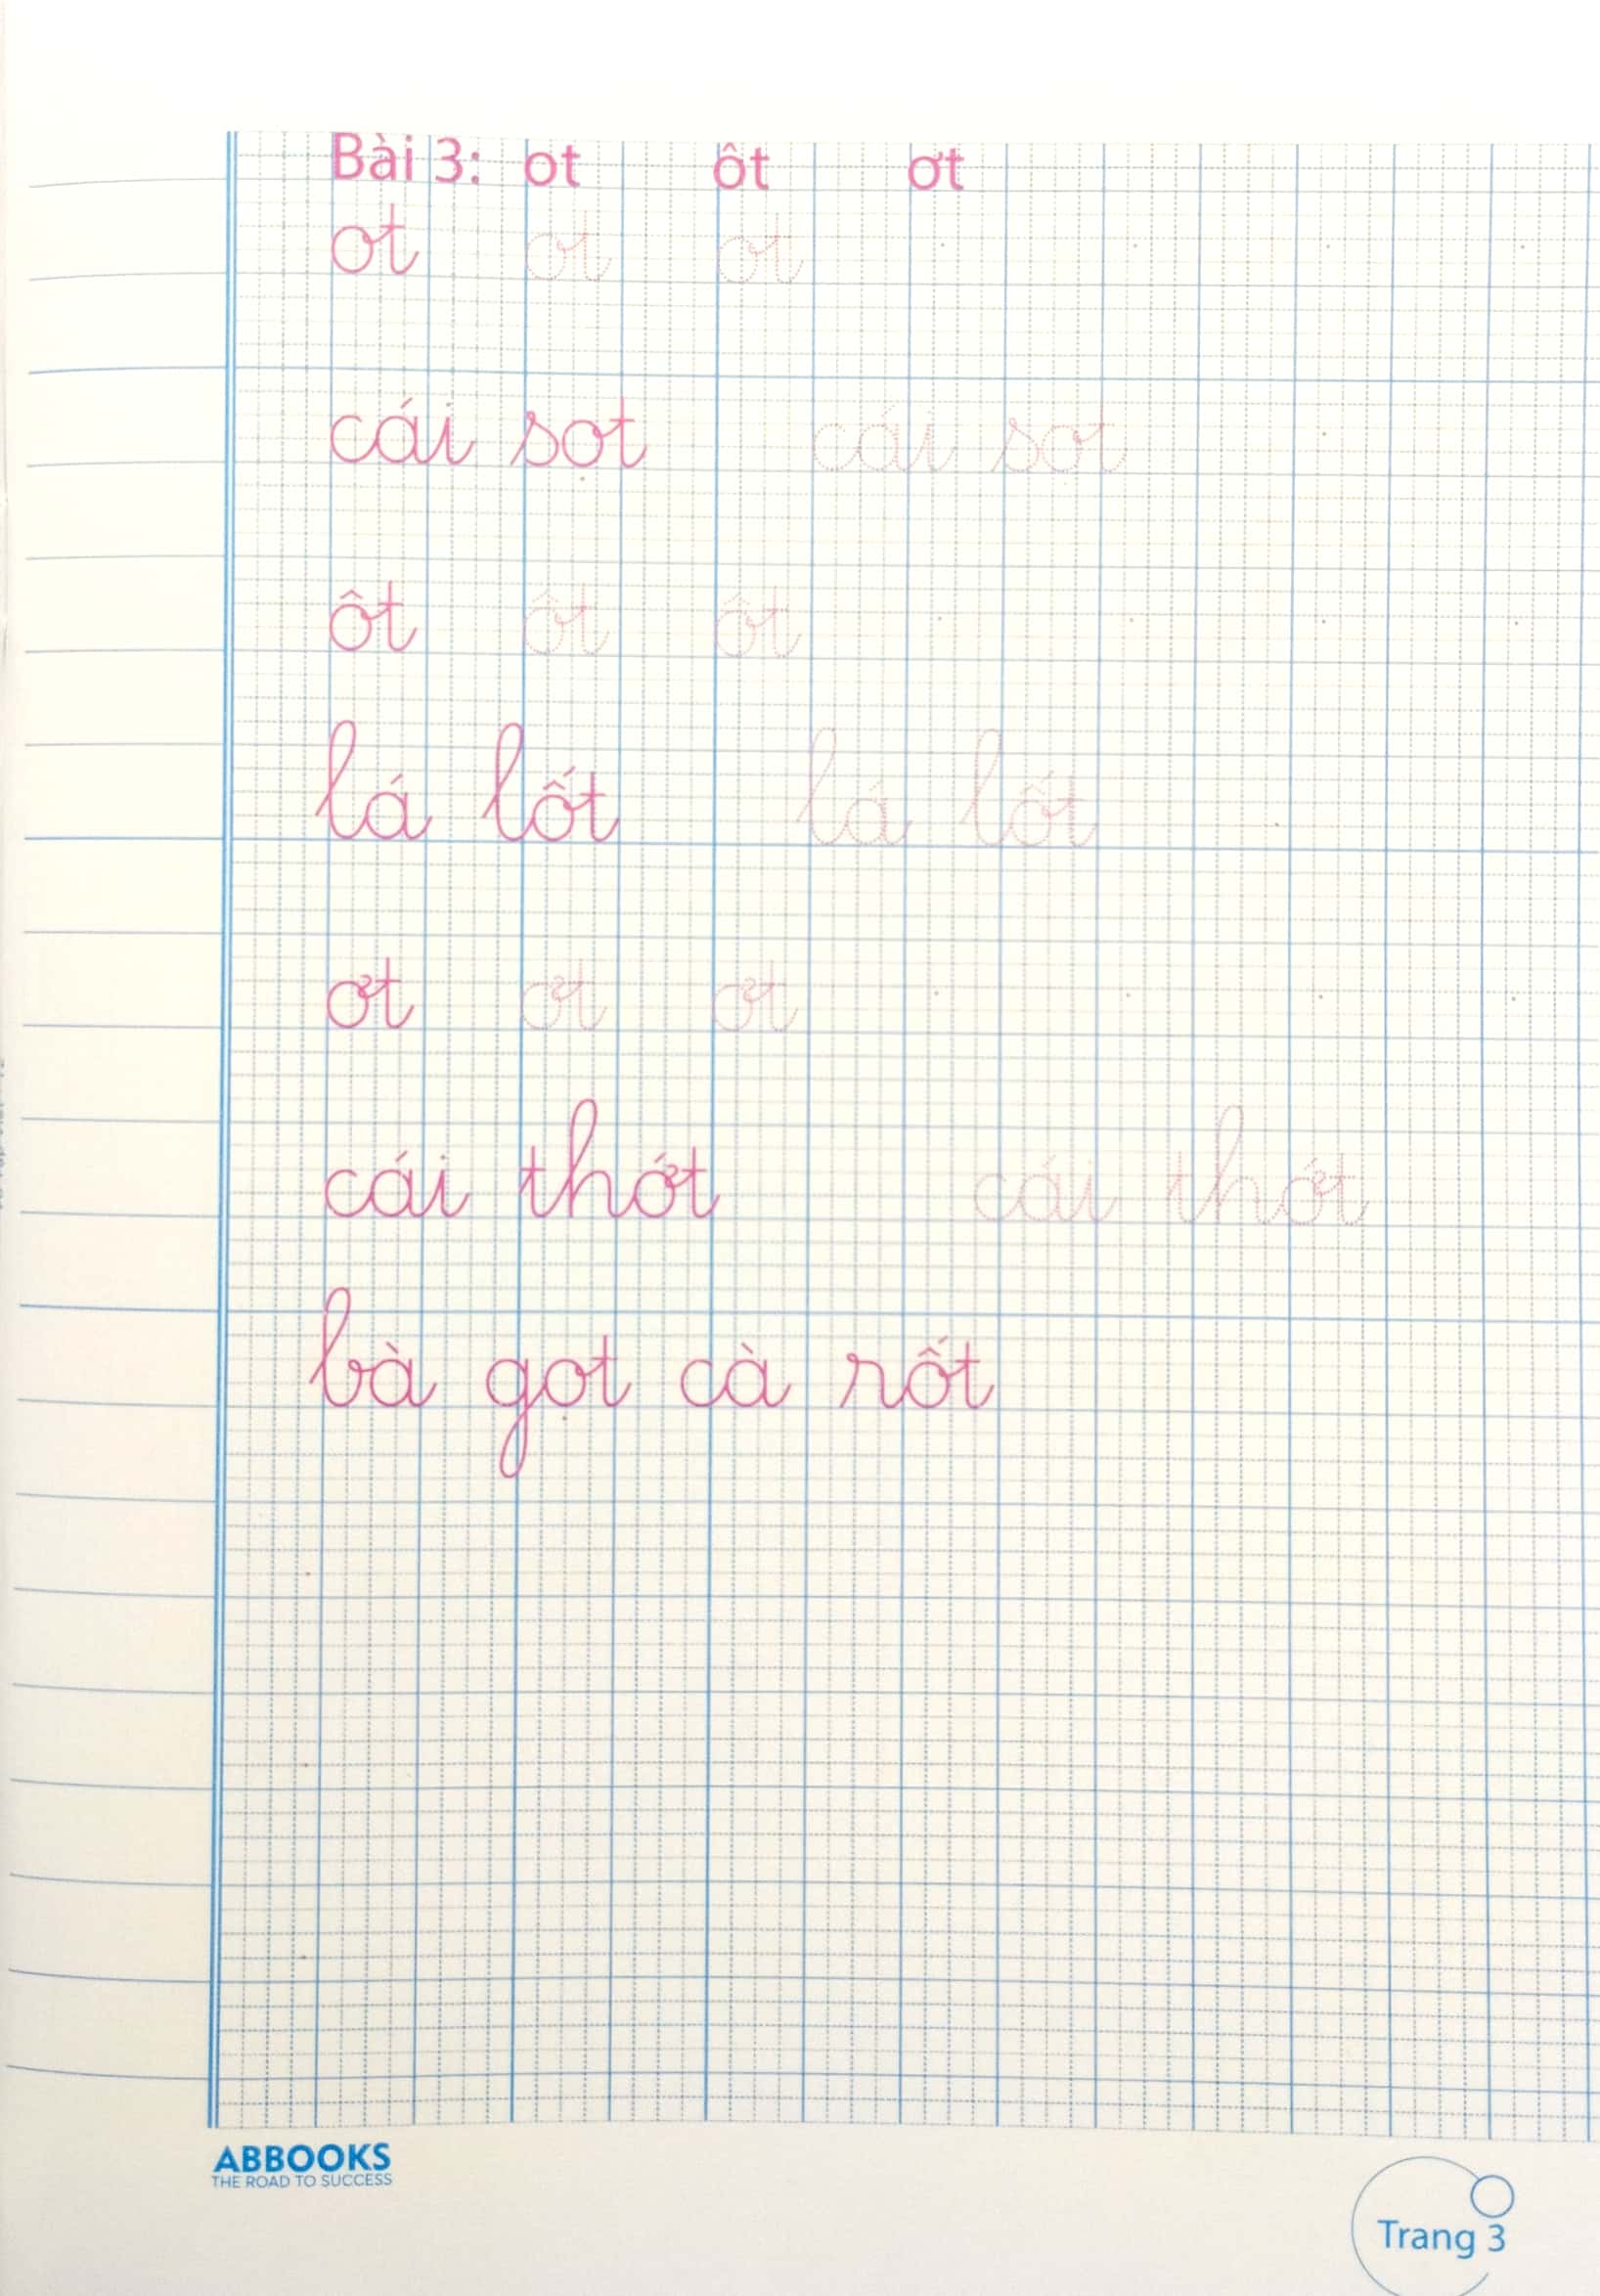 Bài 3: ot ôt ơt
ot ot ot
cái sọt cái sọt
ôt ôt ôt
lá lốt lá lốt
ơt ơt ơt
cái thớt cái thớt
bà gọt cà rốt
ABBOOKS
THE ROAD TO SUCCESS
Trang 3